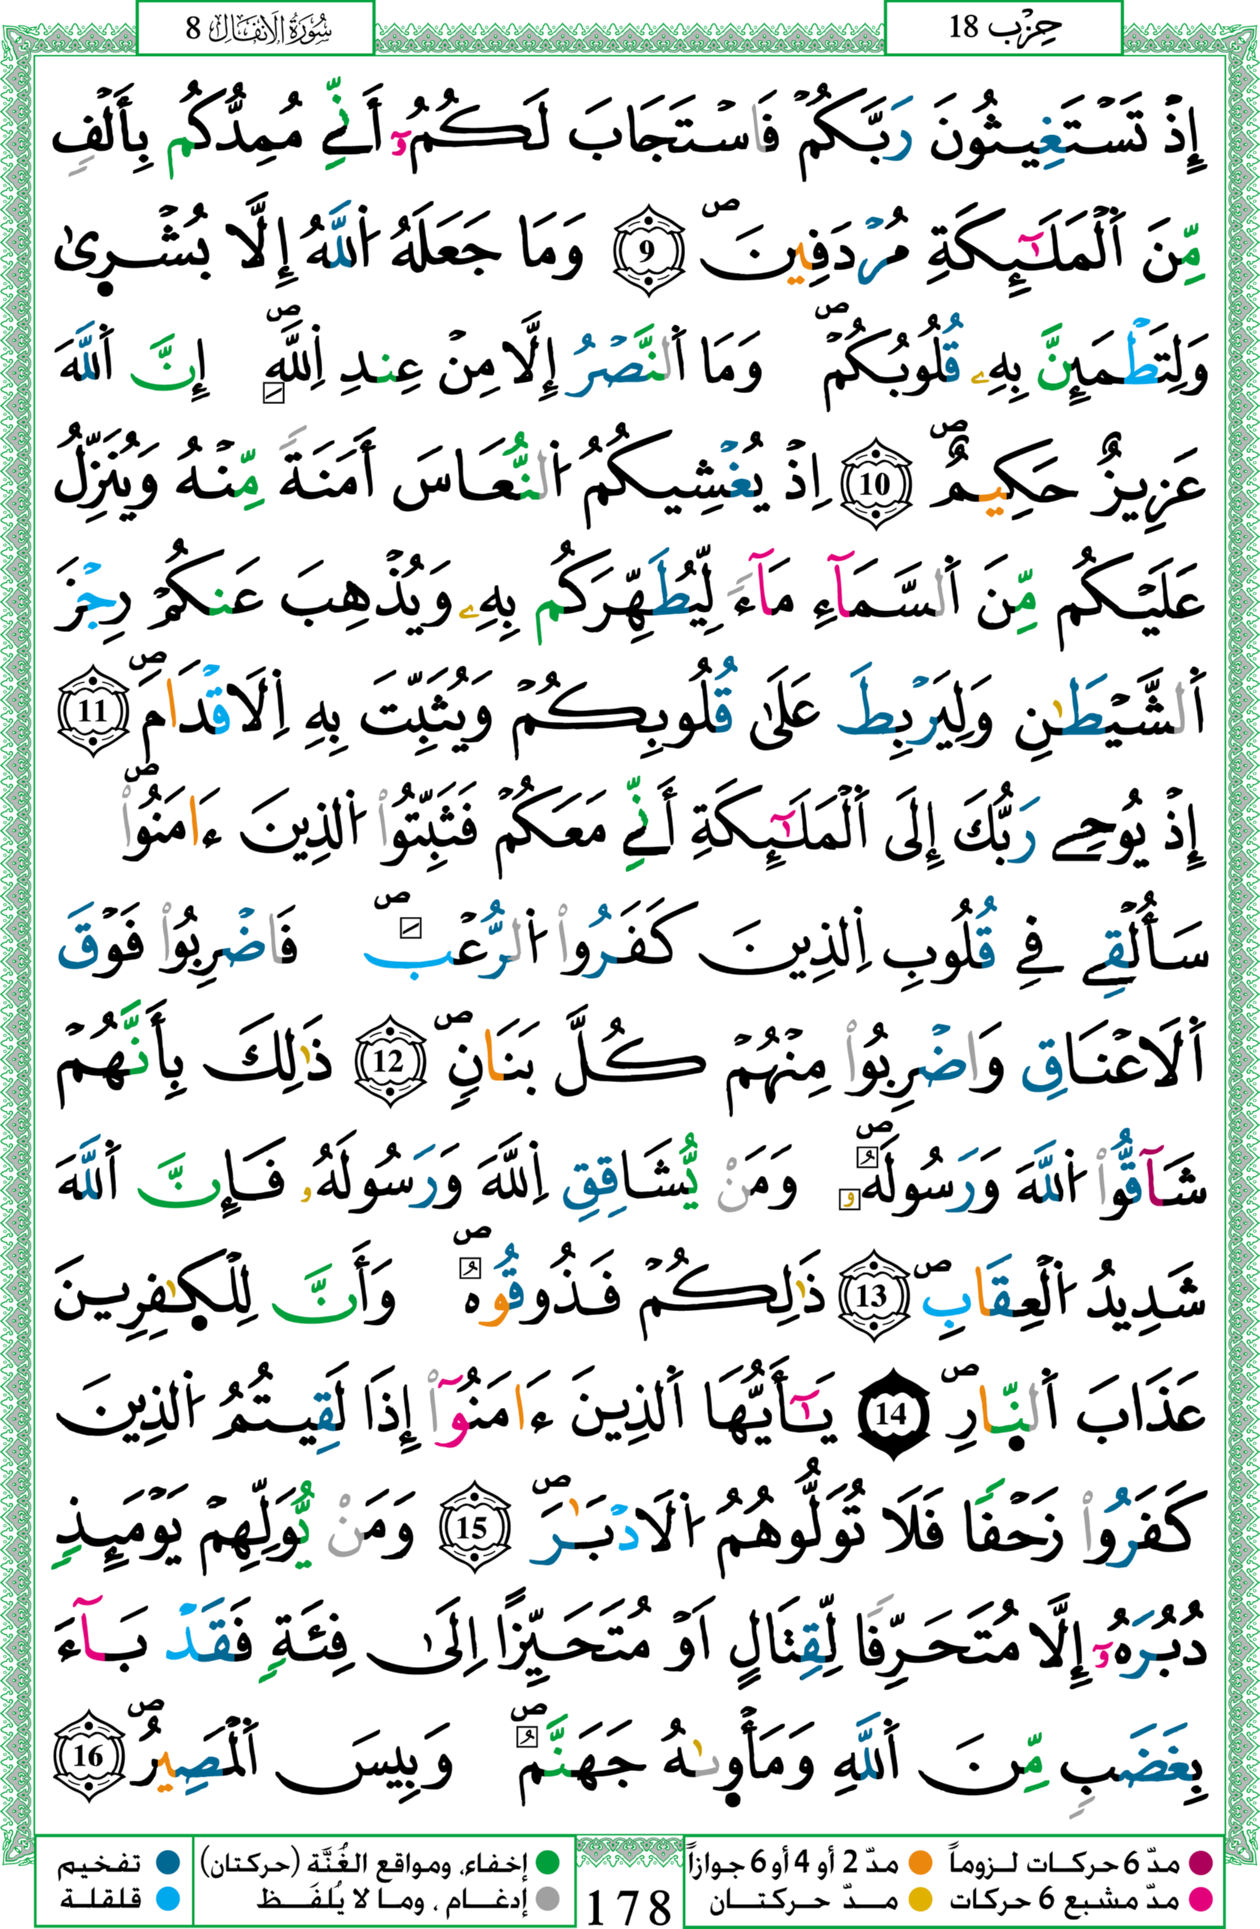 حِزْب 18
سُورَةُ الَانفَالِ 8
إِذْ تَسْتَغِيثُونَ رَبَّكُمْ فَاسْتَجَابَ لَكُمُۥٓ أَنِّے مُمِدُّكُم بِأَلْفٖ
مِّنَ اَ۬لْمَلَٰٓئِكَةِ مُرْدَفِينَۖ 9 وَمَا جَعَلَهُ اُ۬للَّهُ إِلَّا بُشْر۪يٰ
وَلِتَطْمَئِنَّ بِهِۦ قُلُوبُكُمْۖ وَمَا اَ۬لنَّصْرُ إِلَّا مِنْ عِندِ اِ۬للَّهِۖ إِنَّ اَ۬للَّهَ
عَزِيزٌ حَكِيمٌۖ 10 اِذْ يُغْشِيكُمُ اُ۬لنُّعَاسَ أَمَنَةٗ مِّنْهُ وَيُنَزِّلُ
عَلَيْكُم مِّنَ اَ۬لسَّمَآءِ مَآءٗ لِّيُطَهِّرَكُم بِهِۦ وَيُذْهِبَ عَنكُمْ رِجْزَ
اَ۬لشَّيْطَٰنِ وَلِيَرْبِطَ عَلَىٰ قُلُوبِكُمْ وَيُثَبِّتَ بِهِ اِ۬لَاقْدَامَۖ 11
إِذْ يُوحِے رَبُّكَ إِلَى اَ۬لْمَلَٰٓئِكَةِ أَنِّے مَعَكُمْ فَثَبِّتُواْ اُ۬لذِينَ ءَامَنُواْۖ
سَأُلْقِے فِے قُلُوبِ اِ۬لذِينَ كَفَرُواْ اُ۬لرُّعْبَۖ فَاضْرِبُواْ فَوْقَ
اَ۬لَاعْنَاقِ وَاضْرِبُواْ مِنْهُمْ كُلَّ بَنَانٖۖ 12 ذَٰلِكَ بِأَنَّهُمْ
شَآقُّواْ اُ۬للَّهَ وَرَسُولَهُۥۖ وَمَنْ يُّشَاقِقِ اِ۬للَّهَ وَرَسُولَهُۥ فَإِنَّ اَ۬للَّهَ
شَدِيدُ اُ۬لْعِقَابِۖ 13 ذَٰلِكُمْ فَذُوقُوهُۖ وَأَنَّ لِلْكٰ۪فِرِينَ
عَذَابَ اَ۬لنّ۪ارِۖ 14 يَٰٓأَيُّهَا اَ۬لذِينَ ءَامَنُوٓاْ إِذَا لَقِيتُمُ اُ۬لذِينَ
كَفَرُواْ زَحْفاٗ فَلَا تُوَلُّوهُمُ اُ۬لَادْبَٰرَۖ 15 وَمَنْ يُّوَلِّهِمْ يَوْمَئِذٖ
دُبُرَهُۥٓ إِلَّا مُتَحَرِّفاٗ لِّقِتَالٍ اَوْ مُتَحَيِّزاً اِلَىٰ فِئَةٖ فَقَدْ بَآءَ
بِغَضَبٖ مِّنَ اَ۬للَّهِ وَمَأْو۪يٰهُ جَهَنَّمُۖ وَبِيسَ اَ۬لْمَصِيرُۖ 16
مدّ 6 حركات لـزوماً
مدّ 2 أو 4 أو 6 جوازاً
إخفاء، ومواقع الغُنَّة (حركتان)
تفخيم
مدّ مشبع 6 حركات
مـدّ حركتــان
إدغام ، وما لا يُلفَـظ
قلقلة
178